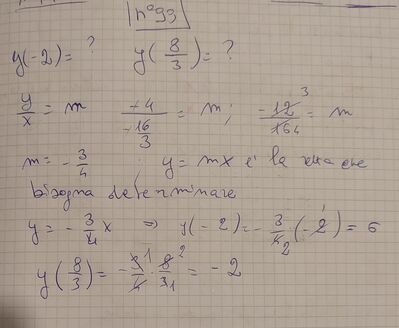 n°93
y(-2)= ? y(8/3)= ?
y/x = m +4/(-16/3) = m; -12/16 3/4 = m
m = -3/4 ; y = mx è la retta che
bisogna determinare
y = -3/4 x => y(-2) = -3/4 2 · (-2) 1 = 6
y(8/3) = -3/4 1 · 8/3 2 1 = -2